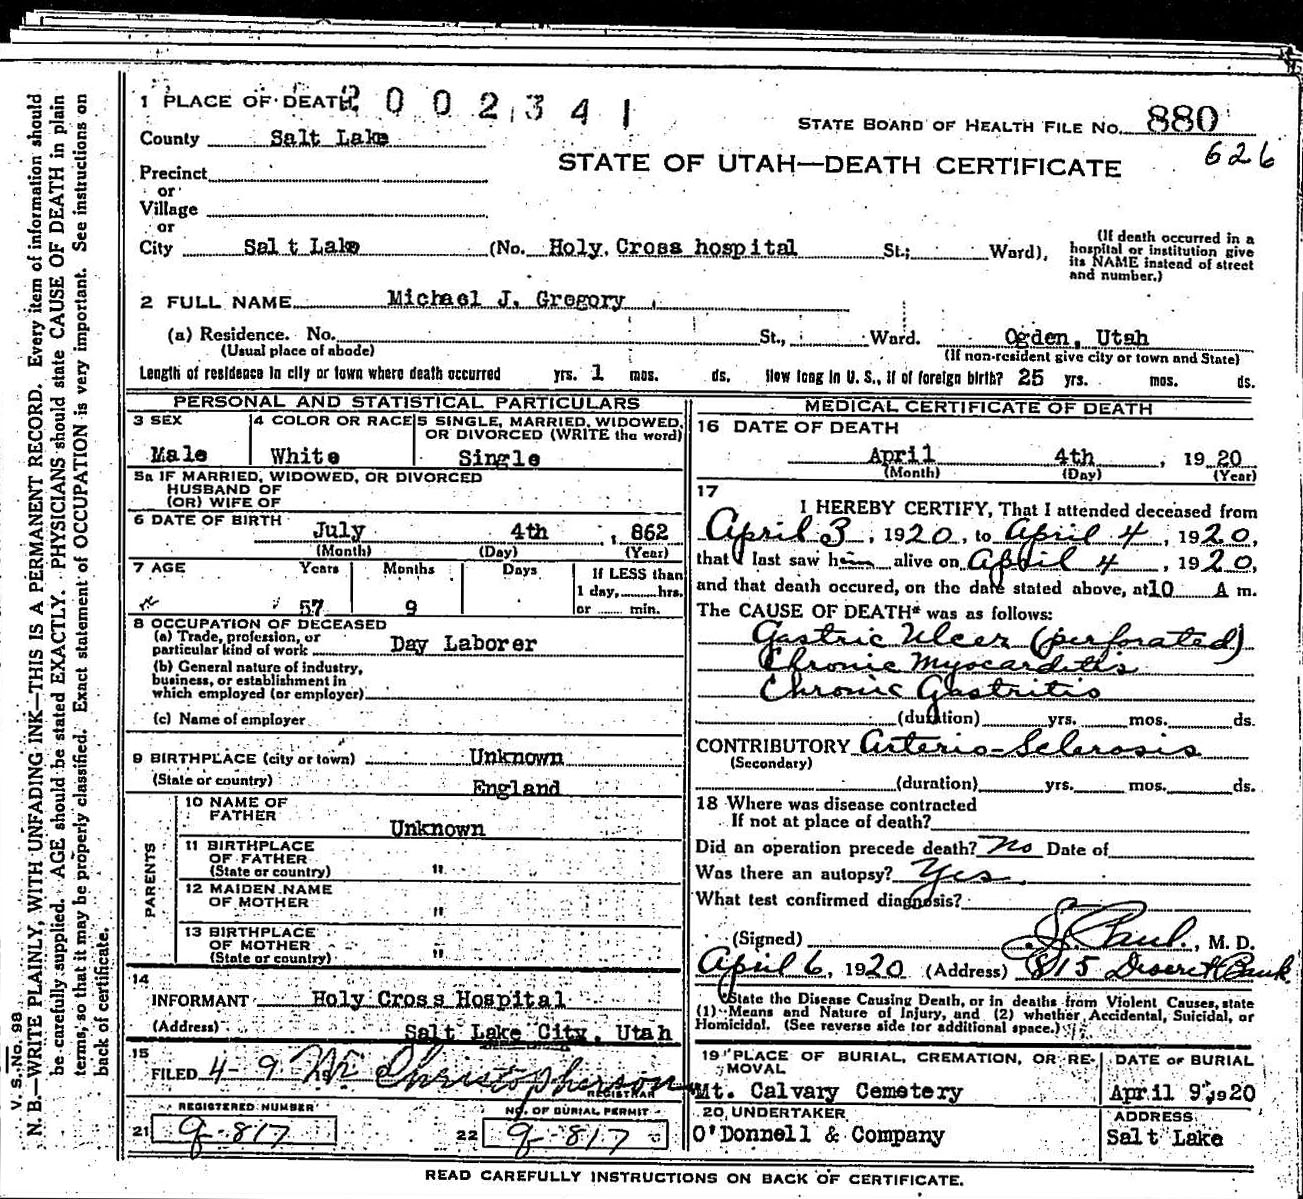 2002341
1 PLACE OF DEATH
STATE BOARD OF HEALTH FILE NO. 880
626
County Salt Lake
STATE OF UTAH—DEATH CERTIFICATE
Precinct
or
Village
or
City Salt Lake (No. Holy Cross hospital St.; Ward),
(If death occurred in a hospital or institution give its NAME instead of street and number.)
2 FULL NAME Michael J. Gregory
(a) Residence. No. St., Ward. Ogden, Utah
(Usual place of abode) (If non-resident give city or town and State)
Length of residence in city or town where death occurred yrs. 1 mos. ds. How long in U. S., if of foreign birth? 25 yrs. mos. ds.
PERSONAL AND STATISTICAL PARTICULARS
3 SEX
Male
4 COLOR OR RACE
White
5 SINGLE, MARRIED, WIDOWED, OR DIVORCED (WRITE the word)
Single
5a IF MARRIED, WIDOWED, OR DIVORCED
HUSBAND OF
(OR) WIFE OF
6 DATE OF BIRTH
July 4th , 862
(Month) (Day) (Year)
7 AGE Years Months Days If LESS than
1 day, hrs.
57 9 or min.
8 OCCUPATION OF DECEASED
(a) Trade, profession, or
particular kind of work Day Laborer
(b) General nature of industry,
business, or establishment in
which employed (or employer)
(c) Name of employer
9 BIRTHPLACE (city or town) Unknown
(State or country) England
PARENTS
10 NAME OF
FATHER
Unknown
11 BIRTHPLACE
OF FATHER
(State or country) "
12 MAIDEN NAME
OF MOTHER "
13 BIRTHPLACE
OF MOTHER
(State or country) "
14
INFORMANT Holy Cross Hospital
(Address) Salt Lake City, Utah
15
FILED 4-9 Christopherson
REGISTRAR
REGISTERED NUMBER
21 9-817
NO. OF BURIAL PERMIT
22 9-817
MEDICAL CERTIFICATE OF DEATH
16 DATE OF DEATH
April 4th , 1920
(Month) (Day) (Year)
17
I HEREBY CERTIFY, That I attended deceased from
April 3, 1920, to April 4, 1920,
that I last saw him alive on April 4, 1920,
and that death occured, on the date stated above, at 10 A m.
The CAUSE OF DEATH* was as follows:
Gastric Ulcer (perforated)
Chronic Myocarditis
Chronic Gastritis
(duration) yrs. mos. ds.
CONTRIBUTORY Arterio-Sclerosis
(Secondary)
(duration) yrs. mos. ds.
18 Where was disease contracted
If not at place of death?
Did an operation precede death? No Date of
Was there an autopsy? Yes
What test confirmed diagnosis?
(Signed) Paul, M. D.
April 6, 1920 (Address) 815 Deseret Bank
*State the Disease Causing Death, or in deaths from Violent Causes, state
(1) Means and Nature of Injury, and (2) whether Accidental, Suicidal, or
Homicidal. (See reverse side for additional space.)
19 PLACE OF BURIAL, CREMATION, OR REMOVAL
Mt. Calvary Cemetery
DATE OF BURIAL
April 9, 1920
20 UNDERTAKER
O'Donnell & Company
ADDRESS
Salt Lake
READ CAREFULLY INSTRUCTIONS ON BACK OF CERTIFICATE.
V. S. No. 98
N. B.—WRITE PLAINLY, WITH UNFADING INK—THIS IS A PERMANENT RECORD. Every item of information should
be carefully supplied. AGE should be stated EXACTLY. PHYSICIANS should state CAUSE OF DEATH in plain
terms, so that it may be properly classified. Exact statement of OCCUPATION is very important. See instructions on
back of certificate.